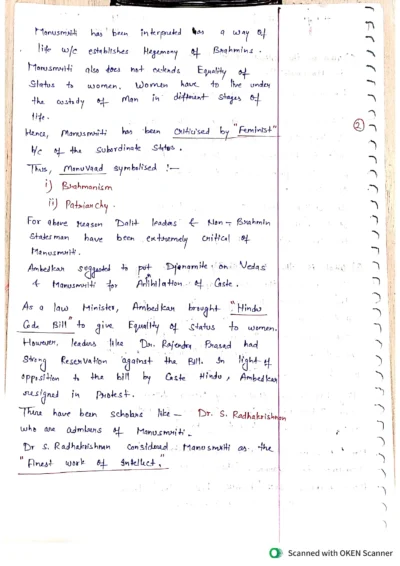 Manusmriti has been interpreted as a way of
life w/c establishes Hegemony of Brahmins.
Manusmriti also does not extends Equality of
Status to women. Women have to live under
the custody of Man in different stages of
life.
Hence, Manusmriti has been Criticised by "Feminist"
b/c of the subordinate Status.
②
Thus, Manuvaad symbolised :—
i) Brahmanism
ii) Patriarchy.
For above reason Dalit leaders & Non-Brahmin
Statesman have been extremely critical of
Manusmriti.
Ambedkar suggested to put Dynamite on Vedas
& Manusmriti for Annihilation of Caste.
As a law Minister, Ambedkar brought "Hindu
Code Bill" to give Equality of Status to women.
However, leaders like Dr. Rajendra Prasad had
Strong Reservation against the Bill. In light of
opposition to the bill by Caste Hindu, Ambedkar
resigned in Protest.
There have been scholars like — Dr. S. Radhakrishnan
who are admirers of Manusmriti.
Dr S. Radhakrishnan considered Manusmriti as the
"Finest work of Intellect."
Scanned with OKEN Scanner